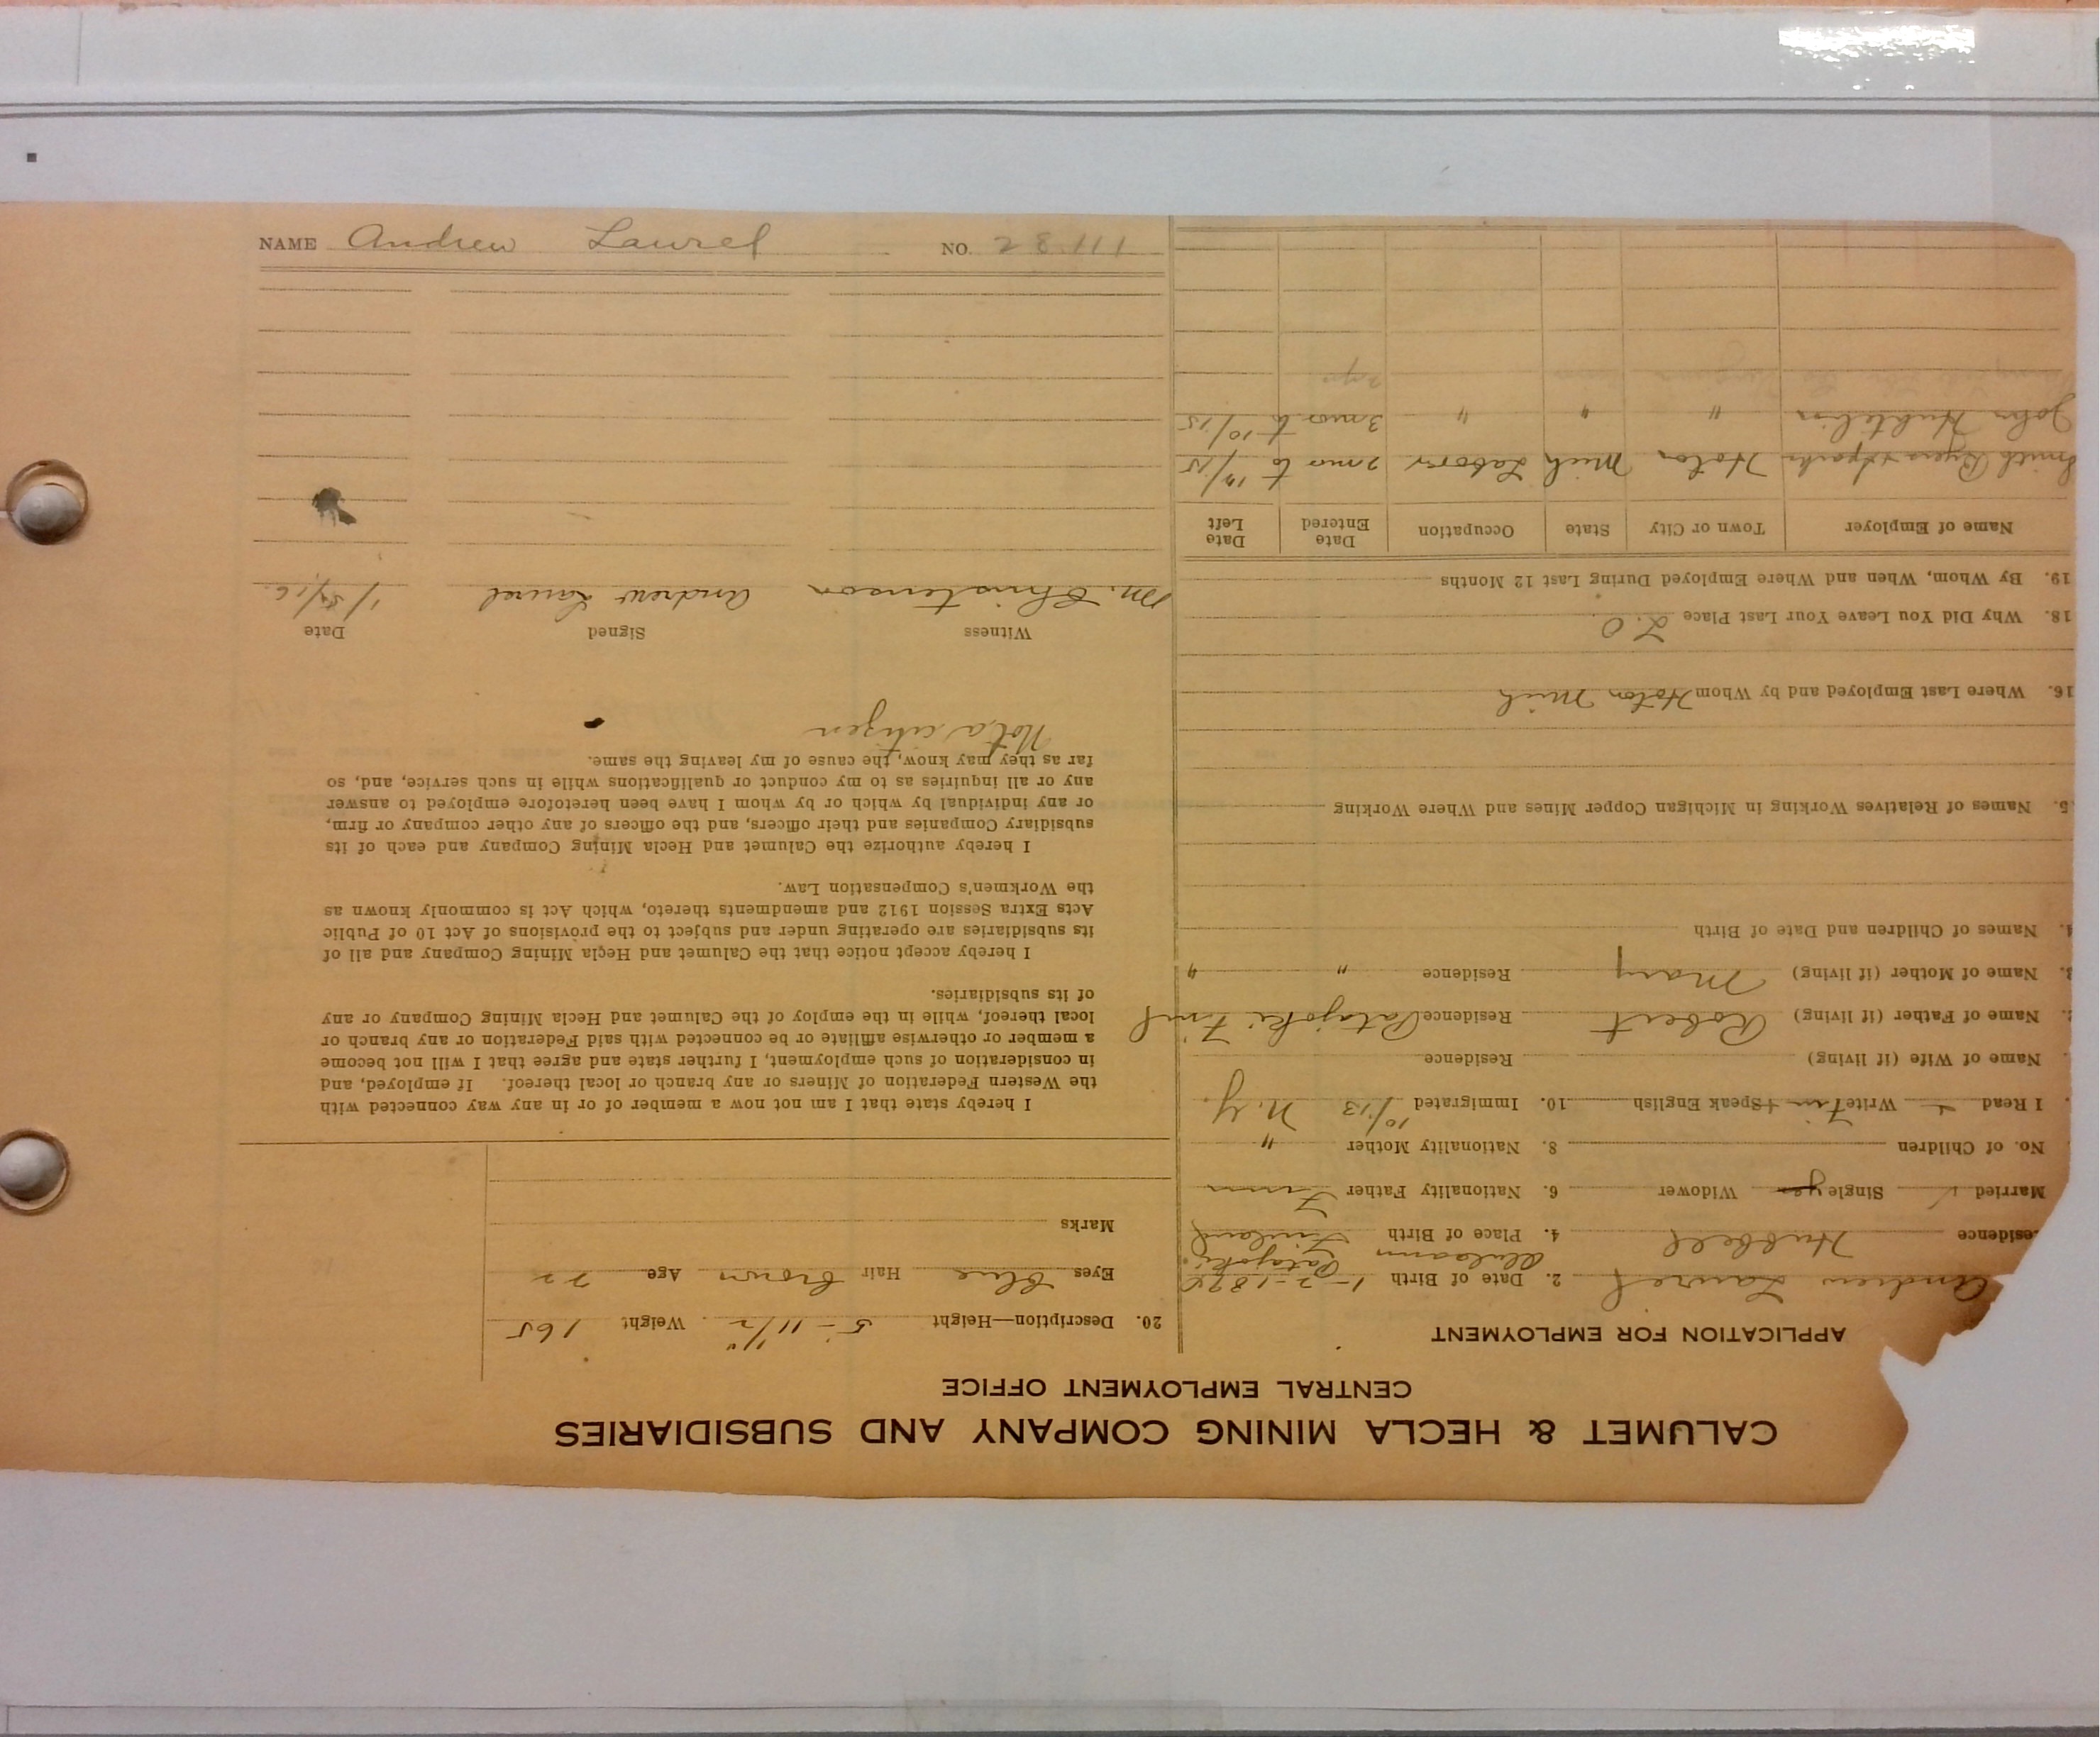 CALUMET & HECLA MINING COMPANY AND SUBSIDIARIES
CENTRAL EMPLOYMENT OFFICE
APPLICATION FOR EMPLOYMENT
Andrew Laurel 2. Date of Birth 1-2-189
esidence Hubbell 4. Place of Birth Finland
Married Single yes Widower 6. Nationality Father Finn
No. of Children 8. Nationality Mother "
I Read + Write Fin + Speak English 10. Immigrated 10/13 N.Y.
Name of Wife (if living) Residence
Name of Father (if living) Robert Residence Patajoki Finl
Name of Mother (if living) Mary Residence " "
Names of Children and Date of Birth
5. Names of Relatives Working in Michigan Copper Mines and Where Working
16. Where Last Employed and by Whom Hoton Mich
18. Why Did You Leave Your Last Place L.O
19. By Whom, When and Where Employed During Last 12 Months
Name of Employer Town or City State Occupation Date Entered Date Left
Smith Byers + Sparks Hoton Mich Laborer 2 mos to /15
John " " " 3 mos to 10/15
20. Description—Height 5'-11 1/2" Weight 165
Eyes Blue Hair Brown Age 22
Marks
I hereby state that I am not now a member of or in any way connected with
the Western Federation of Miners or any branch or local thereof. If employed, and
in consideration of such employment, I further state and agree that I will not become
a member or otherwise affiliate or be connected with said Federation or any branch or
local thereof, while in the employ of the Calumet and Hecla Mining Company or any
of its subsidiaries.
I hereby accept notice that the Calumet and Hecla Mining Company and all of
its subsidiaries are operating under and subject to the provisions of Act 10 of Public
Acts Extra Session 1912 and amendments thereto, which Act is commonly known as
the Workmen's Compensation Law.
I hereby authorize the Calumet and Hecla Mining Company and each of its
subsidiary Companies and their officers, and the officers of any other company or firm,
or any individual by which or by whom I have been heretofore employed to answer
any or all inquiries as to my conduct or qualifications while in such service, and, so
far as they may know, the cause of my leaving the same.
Not a citizen
Witness Signed Date
M. Christenson Andrew Laurel 1/5/16
NAME Andrew Laurel NO. 28111